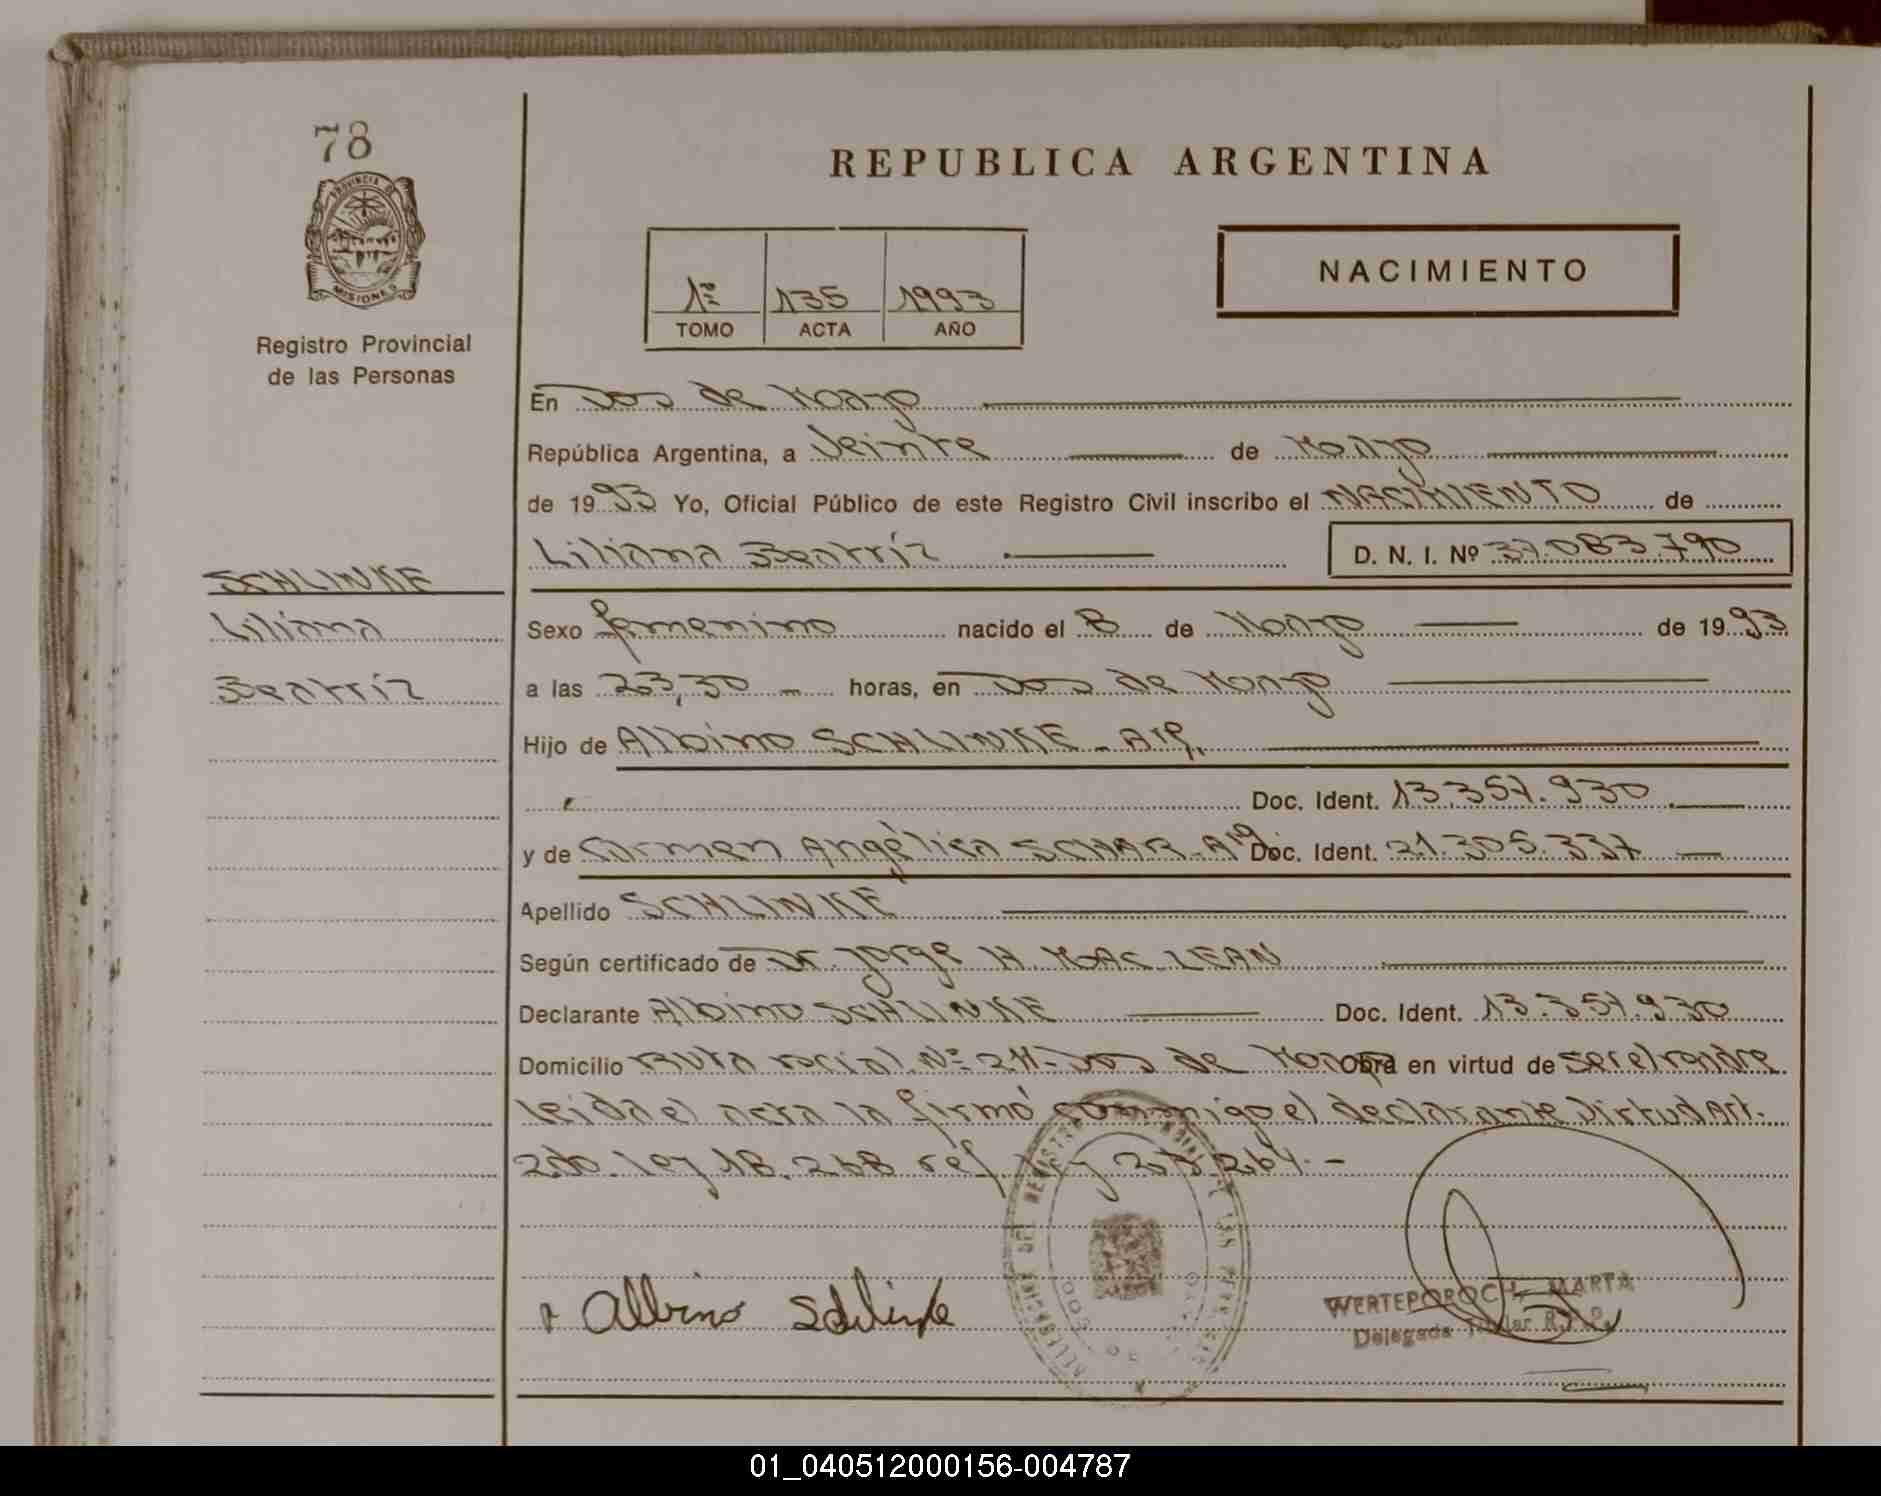 78
PROVINCIA DE
MISIONES
Registro Provincial
de las Personas
REPUBLICA ARGENTINA
1º 135 1993
TOMO ACTA AÑO
NACIMIENTO
En Dos de Mayo
República Argentina, a Veinte de Marzo
de 1993 Yo, Oficial Público de este Registro Civil inscribo el NACIMIENTO de
Liliana Beatríz D. N. I. Nº 37.083.790
SCHLINKE
Liliana
Beatríz
Sexo femenino nacido el 8 de Marzo de 1993
a las 23,30 horas, en Dos de Mayo
Hijo de Albino SCHLINKE - Arg.
Doc. Ident. 13.357.930
y de Carmen Angélica SCHAR - Arg. Doc. Ident. 21.305.337
Apellido SCHLINKE
Según certificado de Dr. Jorge H. MAC LEAN
Declarante Albino SCHLINKE Doc. Ident. 13.357.930
Domicilio Ruta nacial. Nº 211 - Dos de Mayo Obra en virtud de ser el padre
leida el acta la firmó conmigo el declarante Virtud Art.
2do. ley 18.248 ref ley 20.264.-
Albino Schlinke
WERTEPOROCH, MARTA
Delegada Titular R.P.P.
01_040512000156-004787